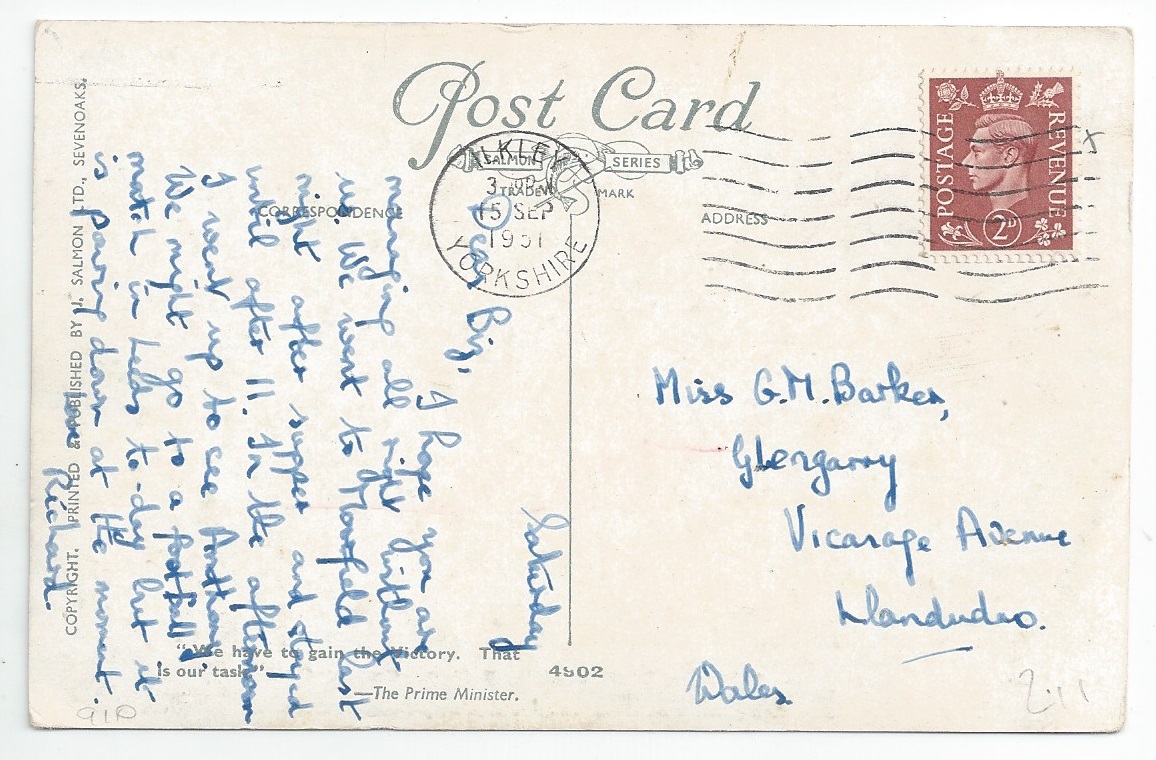 Post Card
SALMON SERIES
TRADE MARK
CORRESPONDENCE
ADDRESS
ILKLEY
15 SEP
1951
YORKSHIRE
POSTAGE
REVENUE
2D
Saturday
Dear Big,
I hope you are
managing all right without
us. We went to Moorfield last
night after supper and stayed
until after 11. In the afternoon
I went up to see Anthony.
We might go to a football
match in Leeds to-day but it
is pouring down at the moment.
Love
Richard.
Miss G.M. Barker,
Glengarry
Vicarage Avenue
Llandudno.
Wales.
"We have to gain the Victory. That
is our task"
—The Prime Minister.
4802
COPYRIGHT. PRINTED & PUBLISHED BY J. SALMON LTD., SEVENOAKS.
910
2.11
x